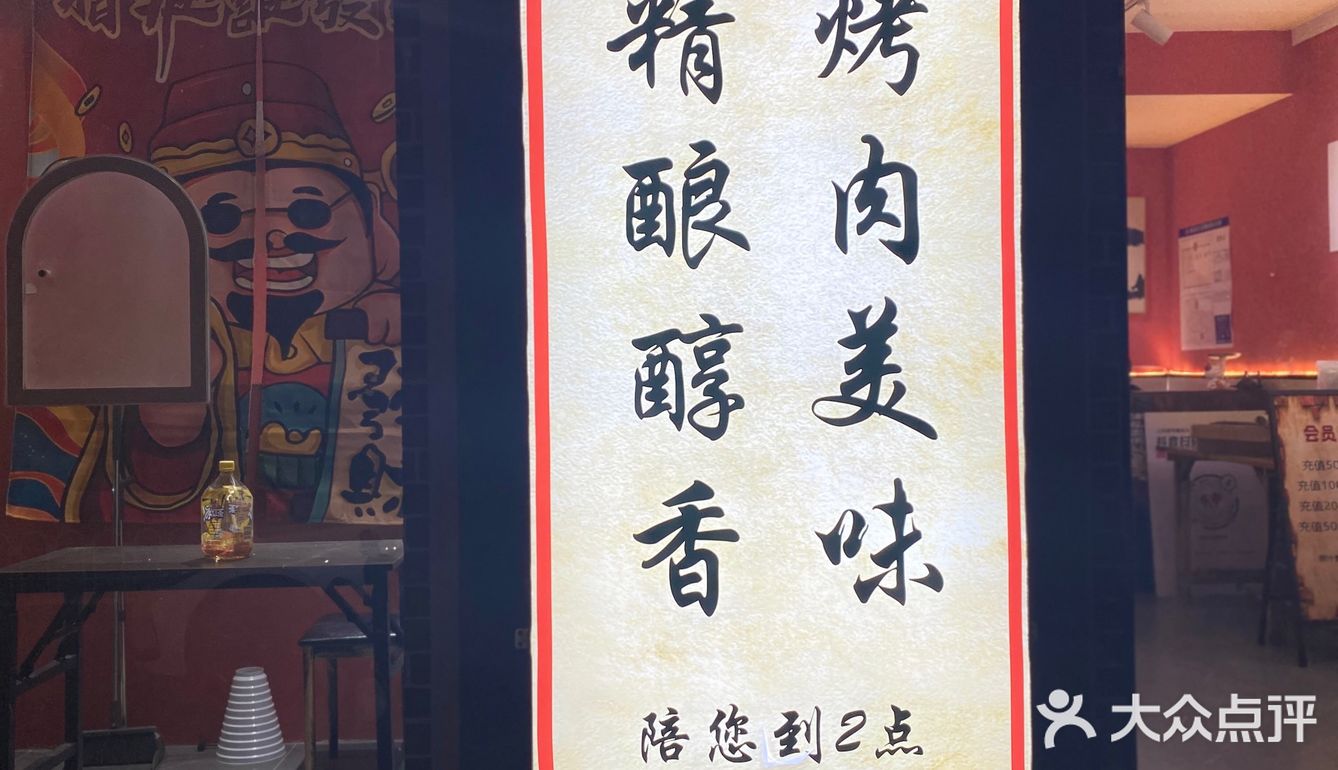 烤肉美味
精酿醇香
陪您到2点
会员
充值50
充值100
充值20
充值50
大众点评